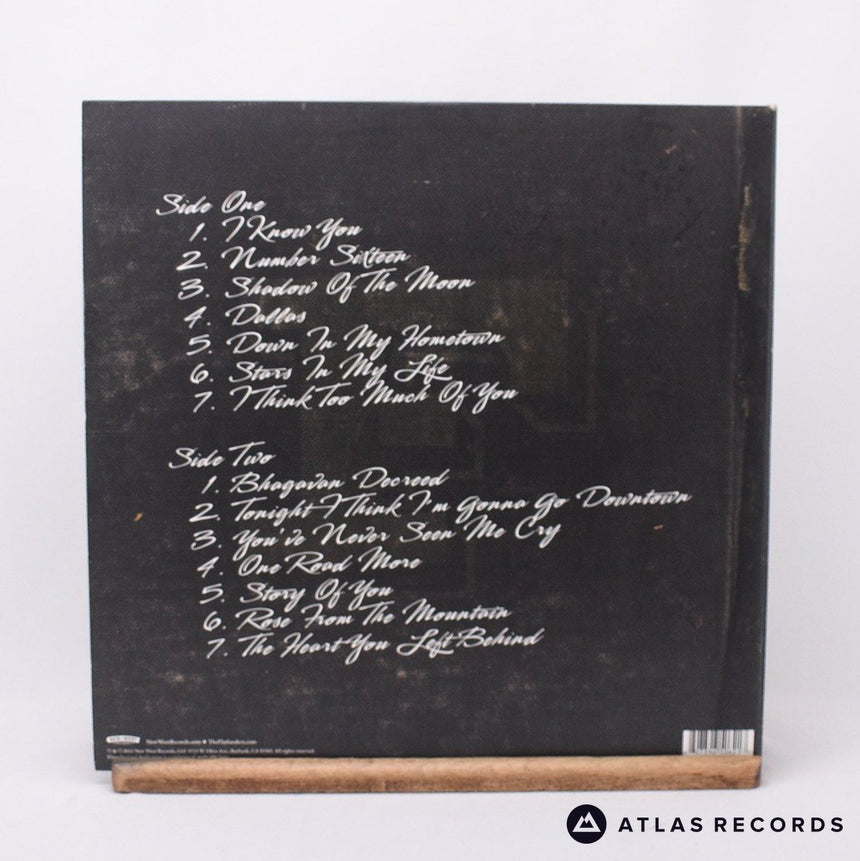 Side One
1. I Know You
2. Number Sixteen
3. Shadow Of The Moon
4. Dallas
5. Down In My Hometown
6. Stars In My Life
7. I Think Too Much Of You
Side Two
1. Bhagavan Decreed
2. Tonight I Think I'm Gonna Go Downtown
3. You've Never Seen Me Cry
4. One Road More
5. Story Of You
6. Rose From The Mountain
7. The Heart You Left Behind
NewWestRecords.com TheFlatlanders.com
ATLAS RECORDS